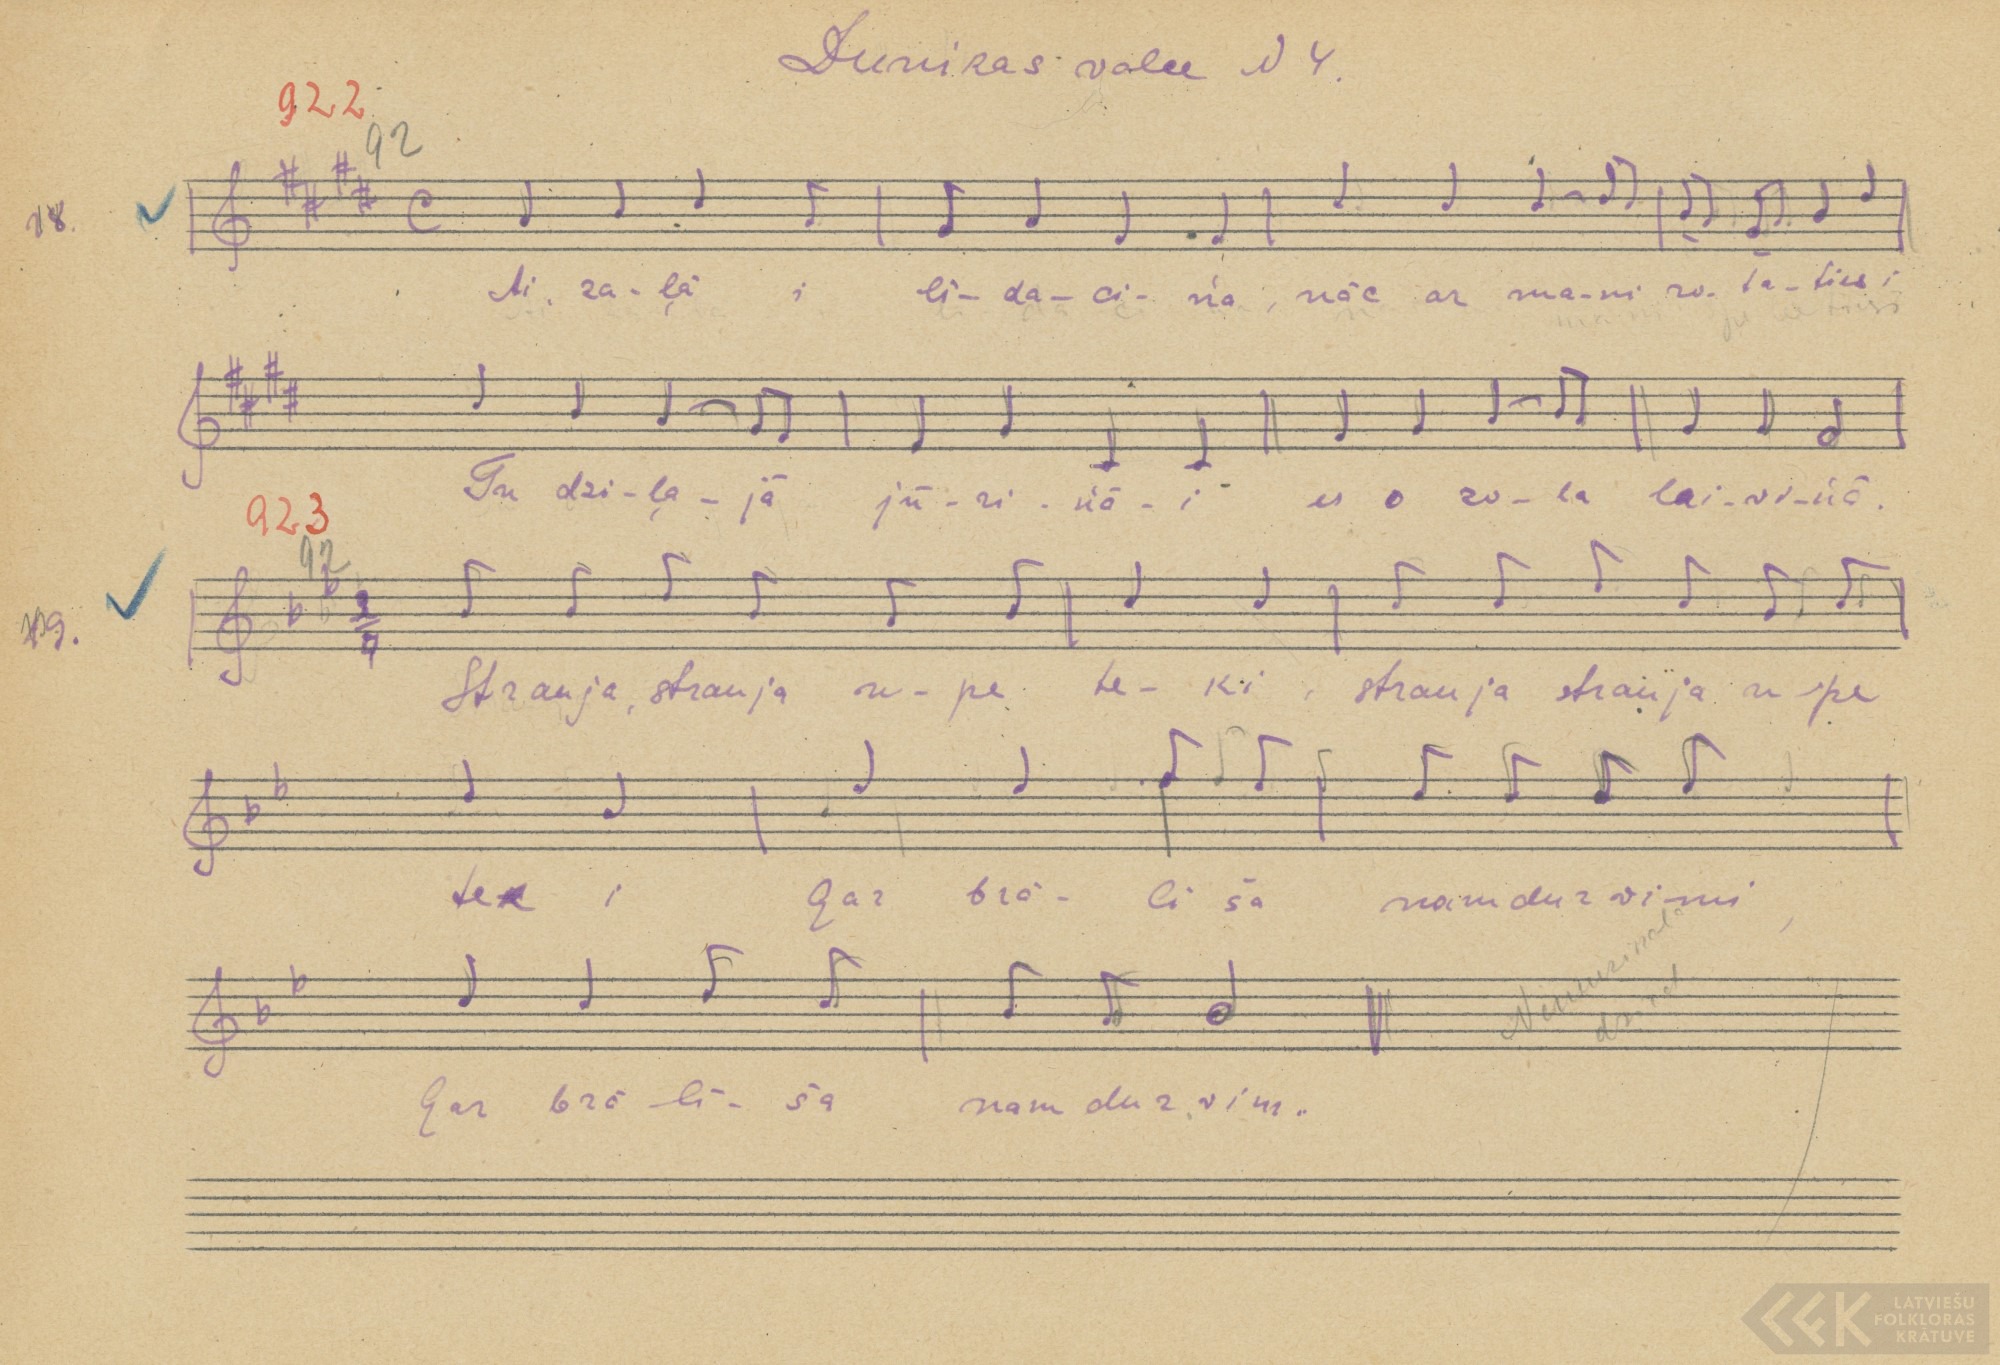 Dunikas valsts N 4.
922
92
18.
Ai, za-ļā i lī-da-ci-ņa, nāc ar ma-ni ro-tā-ties i
Tu dzi-ļa-jā jū-ri-ņā-i es o zo-la lai-vi-ņā.
923
92
19.
2/4
Strauja, strauja u-pe te-ki, strauja strauja u-pe
tek i gar brā-li ša namdurvimi,
gar brā-lī-ša namdurvim.
LATVIEŠU
FOLKLORAS
KRĀTUVE